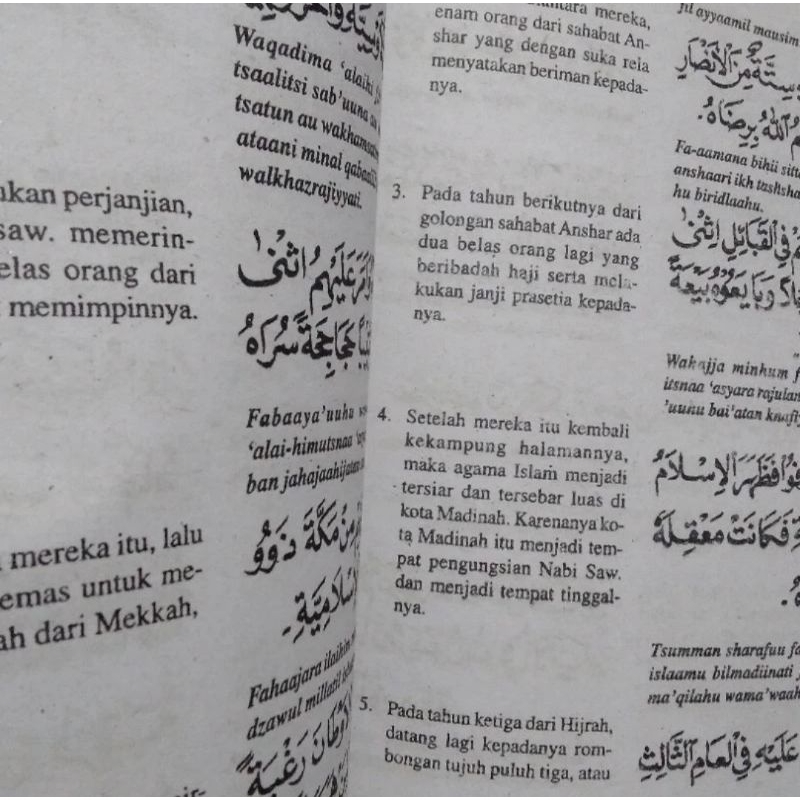 ukan perjanjian,
saw. memerin-
elas orang dari
memimpinnya.
mereka itu, lalu
emas untuk me-
ah dari Mekkah,
Waqadima ‘alaihi
tsaalitsi sab’uuna
tsatun au
ataani minal
walkhazrajiyyati.
عَلَيْهِمُ اثْنَىْ
Fabaaya’uuhu
‘alai-himutsnaa
ban
مَكَّةَ ذَوُو
Fahaajara ilaihim
dzawul millatil
mereka,
enam orang dari sahabat An-
shar yang dengan suka rela
menyatakan beriman kepada-
nya.
3. Pada tahun berikutnya dari
golongan sahabat Anshar ada
dua belas orang lagi yang
beribadah haji serta mela-
kukan janji prasetia kepada-
nya.
4. Setelah mereka itu kembali
kekampung halamannya,
maka agama Islam menjadi
tersiar dan tersebar luas di
kota Madinah. Karenanya ko-
ta Madinah itu menjadi tem-
pat pengungsian Nabi Saw.
dan menjadi tempat tinggal-
nya.
5. Pada tahun ketiga dari Hijrah,
datang lagi kepadanya rom-
bongan tujuh puluh tiga, atau
fil ayyaamil mausim
سِتَّةٌ مِّنَ الْأَنْصَارِ
اللهُ بِرِضَاهُ.
Fa-aamana bihii
anshaari ikh
hu biridlaahu.
الْقَبَائِلِ اثْنَىْ
وَبَايَعُوْهُ بَيْعَةً
Wakajja minhum
itsnaa ‘asyara rajulan
’uunu bai’atan
فَظَهَرَ الْإِسْلَامُ
فَكَانَتْ مَعْقِلَهُ
Tsumman sharafuu
islaamu bilmadiinati
ma’qilahu
عَلَيْهِ فِى الْعَامِ الثَّالِثِ